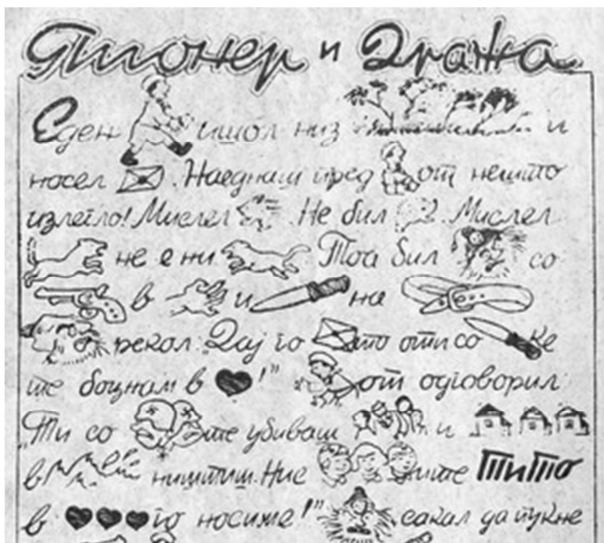 Пионер и Дража
Еден ишол низ и
носел . Наеднаш пред от нешто
излегло! Мислел . Не бил . Мислел
не е ни Тоа бил со
в и на
рекол: Дај го то оти со ќе
те боцнам в !" от одговорил:
„Ти со те убиваш и
в ништиш. Ние ите Тито
в то носиме!" сакал да пукне